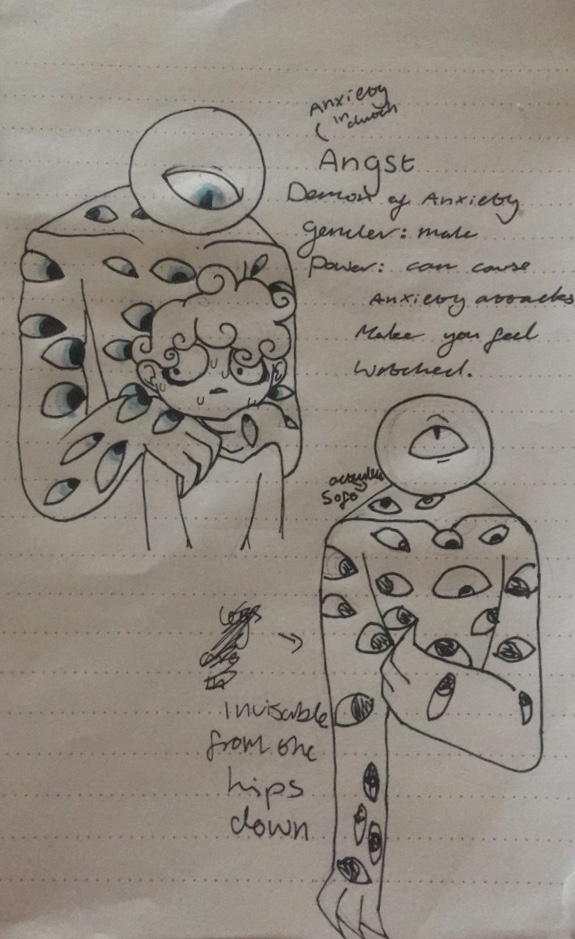 Anxiety
in dutch
Angst
Demon of Anxiety
Gender: male
Power: can cause
Anxiety attacks
Make you feel
Watched.
Invisable
from the
hips
down